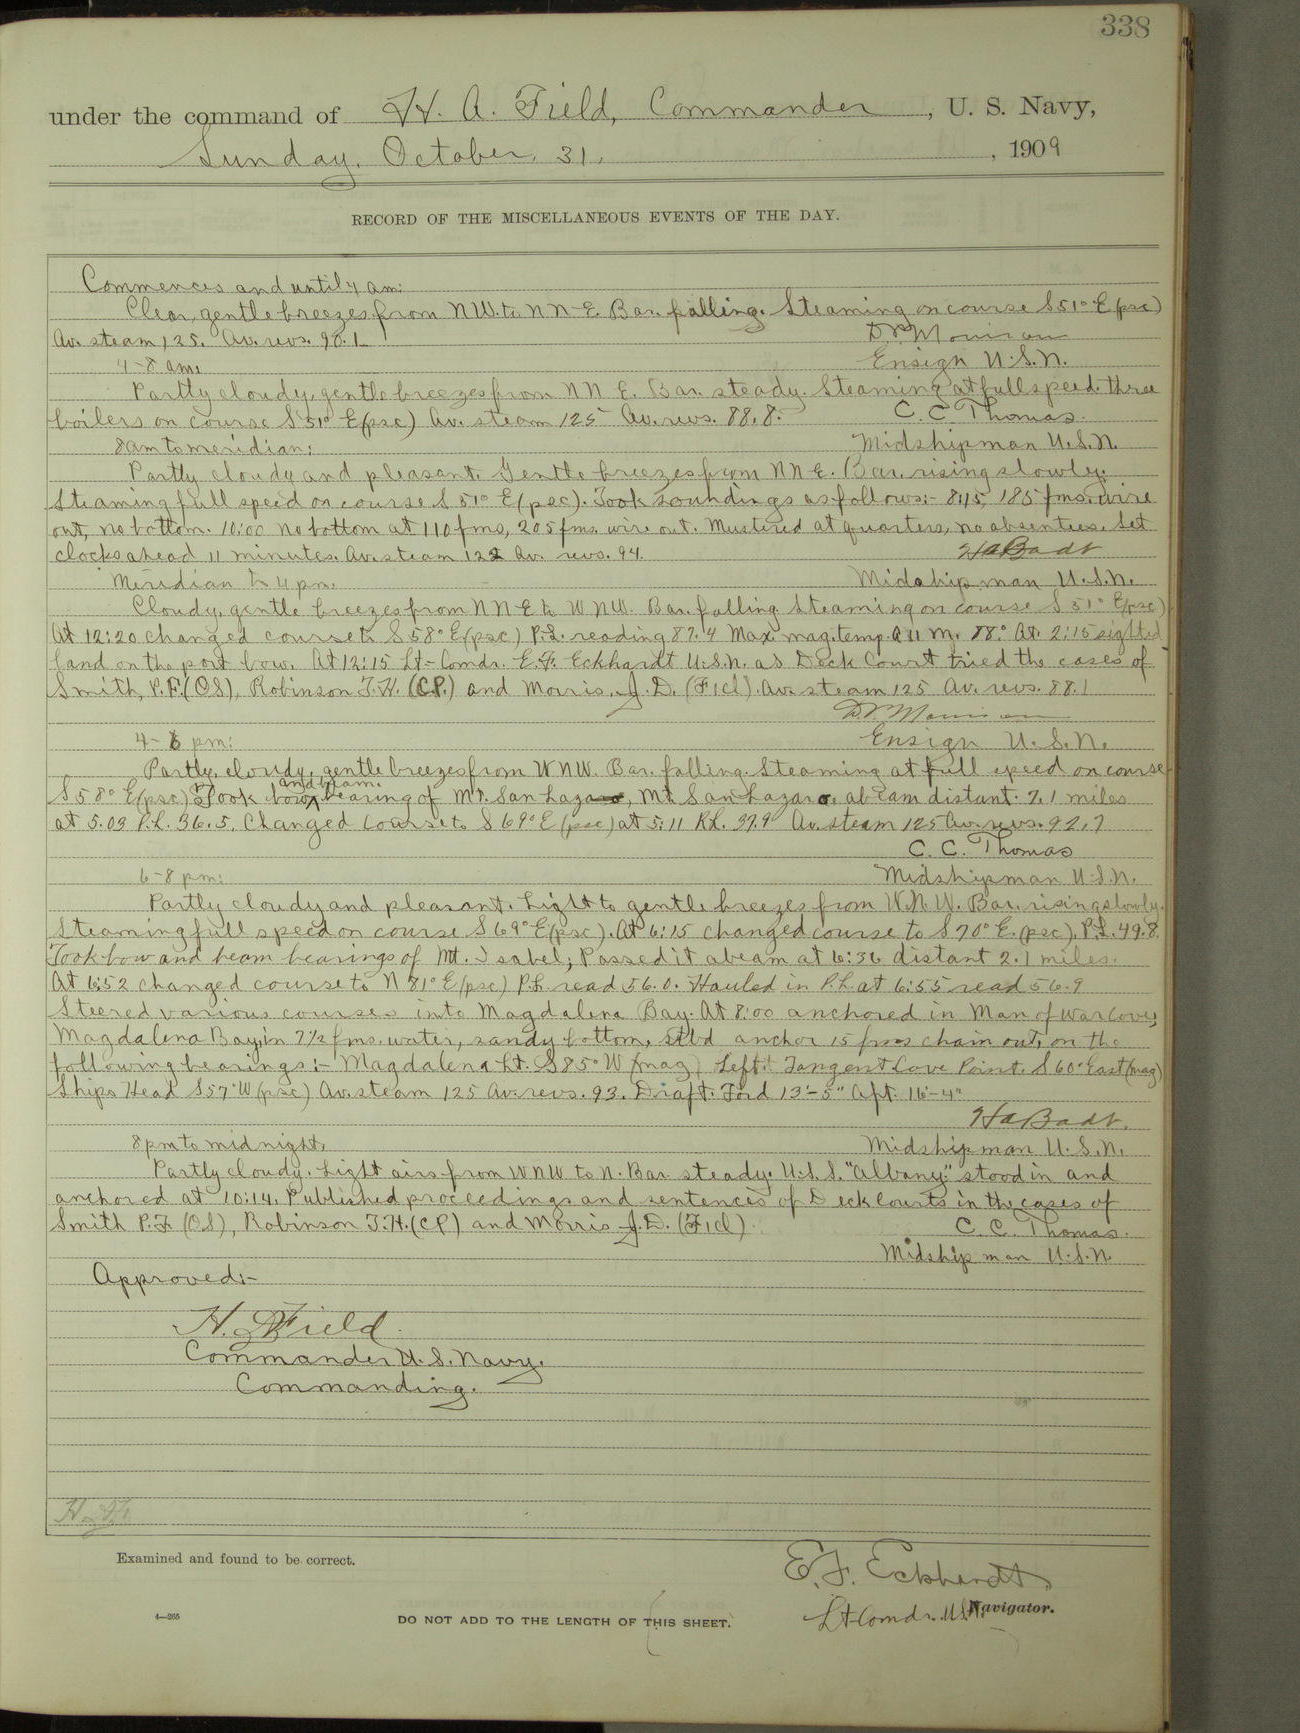 338
under the command of H. A. Field, Commander, U. S. Navy,
Sunday, October 31, 1909
RECORD OF THE MISCELLANEOUS EVENTS OF THE DAY.
Commences and until 4 am:
Clear, gentle breezes from NW. to NN-E. Bar. falling. Steaming on course S 51° E (psc)
Av. steam 125. Av. revs. 90.1
Ensign U.S.N.
4-8 am.
Partly cloudy, gentle breezes from NN E. Bar. steady. Steaming at full speed three
boilers on course S 51° E (psc) Av. steam 125 Av. revs. 88.8.
C. C. Thomas
Midshipman U.S.N.
8 am to meridian:
Partly cloudy and pleasant. Gentle breezes from NNE. Bar. rising slowly.
Steaming full speed on course S 51° E (psc). Took soundings as follows:- 8:15, 185 fms. wire
out, no bottom. 10:00 no bottom at 110 fms, 205 fms. wire out. Mustered at quarters, no absentees. Set
clocks ahead 11 minutes. Av. steam 122 Av. revs. 94.
HABadt
Midshipman U.S.N.
Meridian to 4 pm.
Cloudy, gentle breezes from NNE to WNW. Bar. falling. Steaming on course S 51° E (psc)
At 12:20 changed course to S 58° E (psc) P.L. reading 87.4 Max. mag. temp. A 11 M. 88° At 2:15 sighted
land on the port bow. At 12:15 Lt-Comdr. E.F. Eckhardt U.S.N. as Deck Court tried the cases of
Smith, P.F. (OS), Robinson T.H. (CP.) and Morris, J.D. (F1cl). Av. steam 125 Av. revs. 88.1
Ensign U.S.N.
4-6 pm:
Partly cloudy, gentle breezes from WNW. Bar. falling. Steaming at full speed on course
S 58° E (psc) Took bow and beam bearing of Mt. San Lazaro, Mt. San Lazaro, abeam distant 7.1 miles
at 5.03 P.L. 36.5. Changed course to S 69° E (psc) at 5:11 P.L. 37.9 Av. steam 125 Av. revs. 92.7
C. C. Thomas
Midshipman U.S.N.
6-8 pm:
Partly cloudy and pleasant. Light to gentle breezes from W.N.W. Bar. rising slowly.
Steaming full speed on course S 69° E (psc). At 6:15 changed course to S 70° E. (psc), P.L. 49.8.
Took bow and beam bearings of Mt. Isabel; Passed it abeam at 6:36 distant 2.1 miles.
At 6:52 changed course to N 81° E (psc) P.L. read 56.0. Hauled in P.L. at 6:55 read 56.9
Steered various courses into Magdalena Bay. At 8:00 anchored in Man of War Cove,
Magdalena Bay, in 7½ fms. water, sandy bottom, stbd anchor 15 fms chain out, on the
following bearings:- Magdalena Lt. S 85° W (mag) Left Tangent Cove Point S 60° East (mag)
Ships Head S 57° W (psc) Av. steam 125 Av. revs. 93. Draft: Ford 13'-5" Aft. 16'-4"
HABadt.
Midshipman U.S.N.
8 pm to midnight.
Partly cloudy. Light airs from WNW to N. Bar. steady. U.S.S. "Albany" stood in and
anchored at 10:14. Published proceedings and sentences of Deck Courts in the cases of
Smith P.F. (OS), Robinson T.H. (CP) and Morris J.D. (F1cl).
C. C. Thomas.
Midshipman U.S.N.
Approved:-
H. A. Field
Commander U.S. Navy.
Commanding.
Examined and found to be correct.
E. F. Eckhardt
Lt-Comdr. U.S.N. Navigator.
4—265
DO NOT ADD TO THE LENGTH OF THIS SHEET.